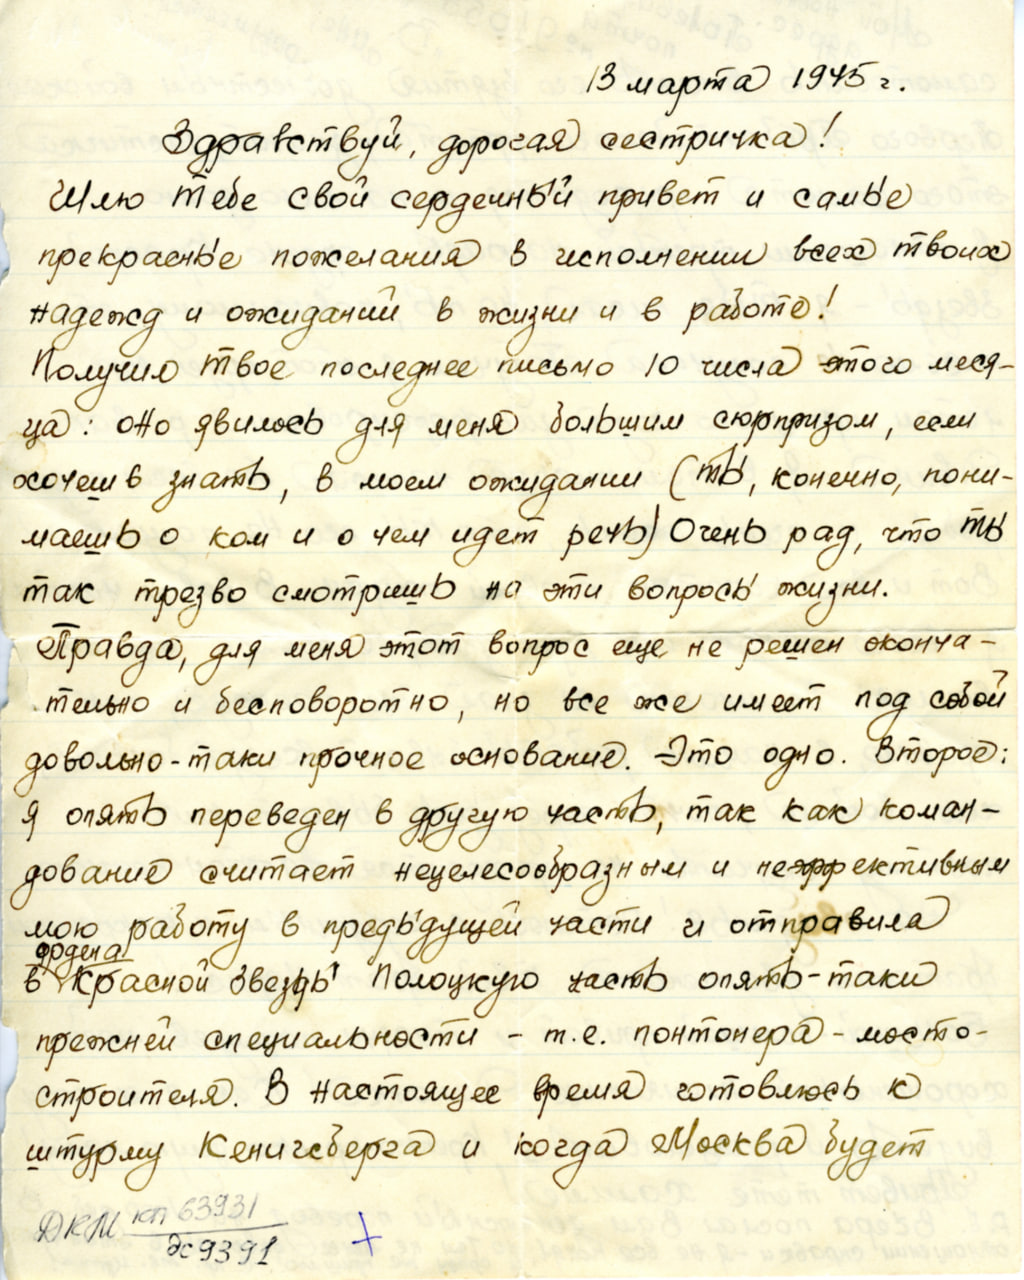 13 марта 1945 г.
Здравствуй, дорогая сестричка!
Шлю тебе свой сердечный привет и самые
прекрасные пожелания в исполнении всех твоих
надежд и ожиданий в жизни и в работе!
Получил твое последнее письмо 10 числа этого меся-
ца: оно явилось для меня большим сюрпризом, если
хочешь знать, в моем ожидании (ты, конечно, пони-
маешь о ком и о чем идет речь) Очень рад, что ты
так трезво смотришь на эти вопросы жизни.
Правда, для меня этот вопрос еще не решен оконча-
тельно и бесповоротно, но все же имеет под собой
довольно-таки прочное основание. Это одно. Второе:
я опять переведен в другую часть, так как коман-
дование считает нецелесообразным и неэффективным
мою работу в предыдущей части и отправила
ордена
в Красной Звезды Полоцкую часть опять-таки
прежней специальности - т.е. понтонера - мосто-
строителя. В настоящее время готовлюсь к
штурму Кенигсберга и когда Москва будет
ДКМ кп 63931
дс9391